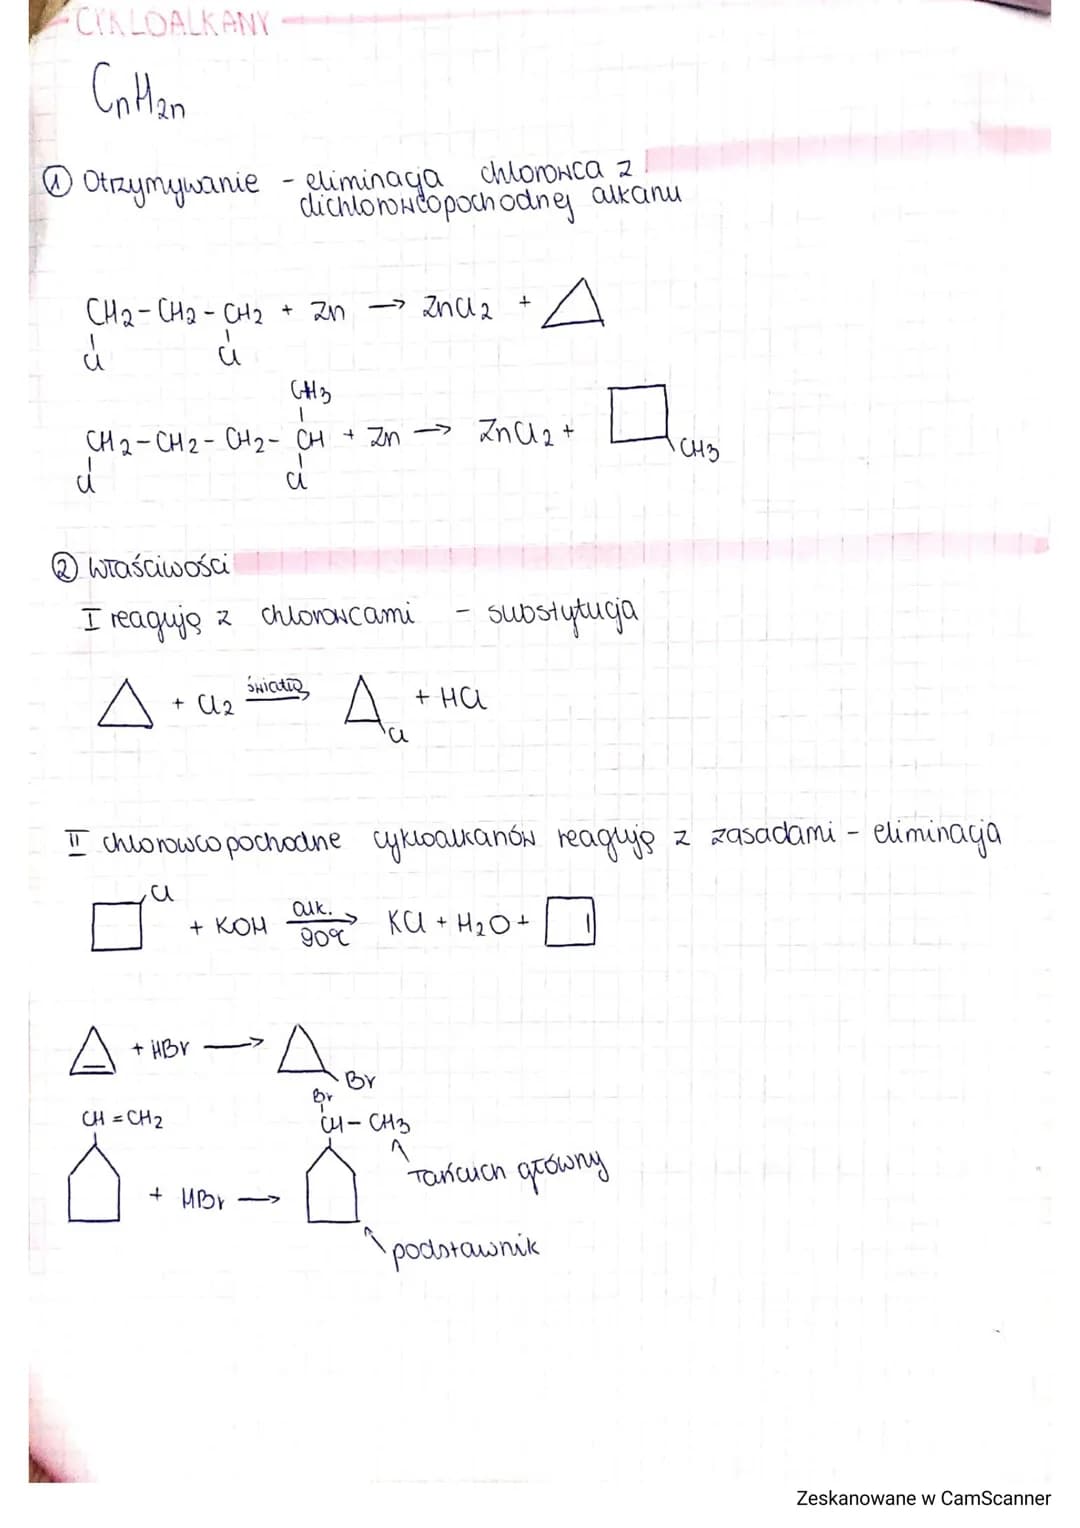 CYKLOALKANY
CnH2n
① Otrzymywanie - eliminacja chlorowca z
dichlorowcopochodnej alkanu
CH2-CH2-CH2 + Zn → ZnCl2 +
Cl Cl
CH3
CH2-CH2-CH2-CH + Zn → ZnCl2 +
CH3
Cl Cl
② Właściwości
I reagują z chlorowcami - substytucja
+ Cl2 światło + HCl
Cl
II chlorowcopochodne cykloalkanów reagują z zasadami - eliminacja
Cl
+ KOH alk. → KCl + H2O +
90°C
+ HBr →
Br
Br
CH=CH2 CH-CH3
łańcuch główny
+ HBr →
podstawnik
Zeskanowane w CamScanner